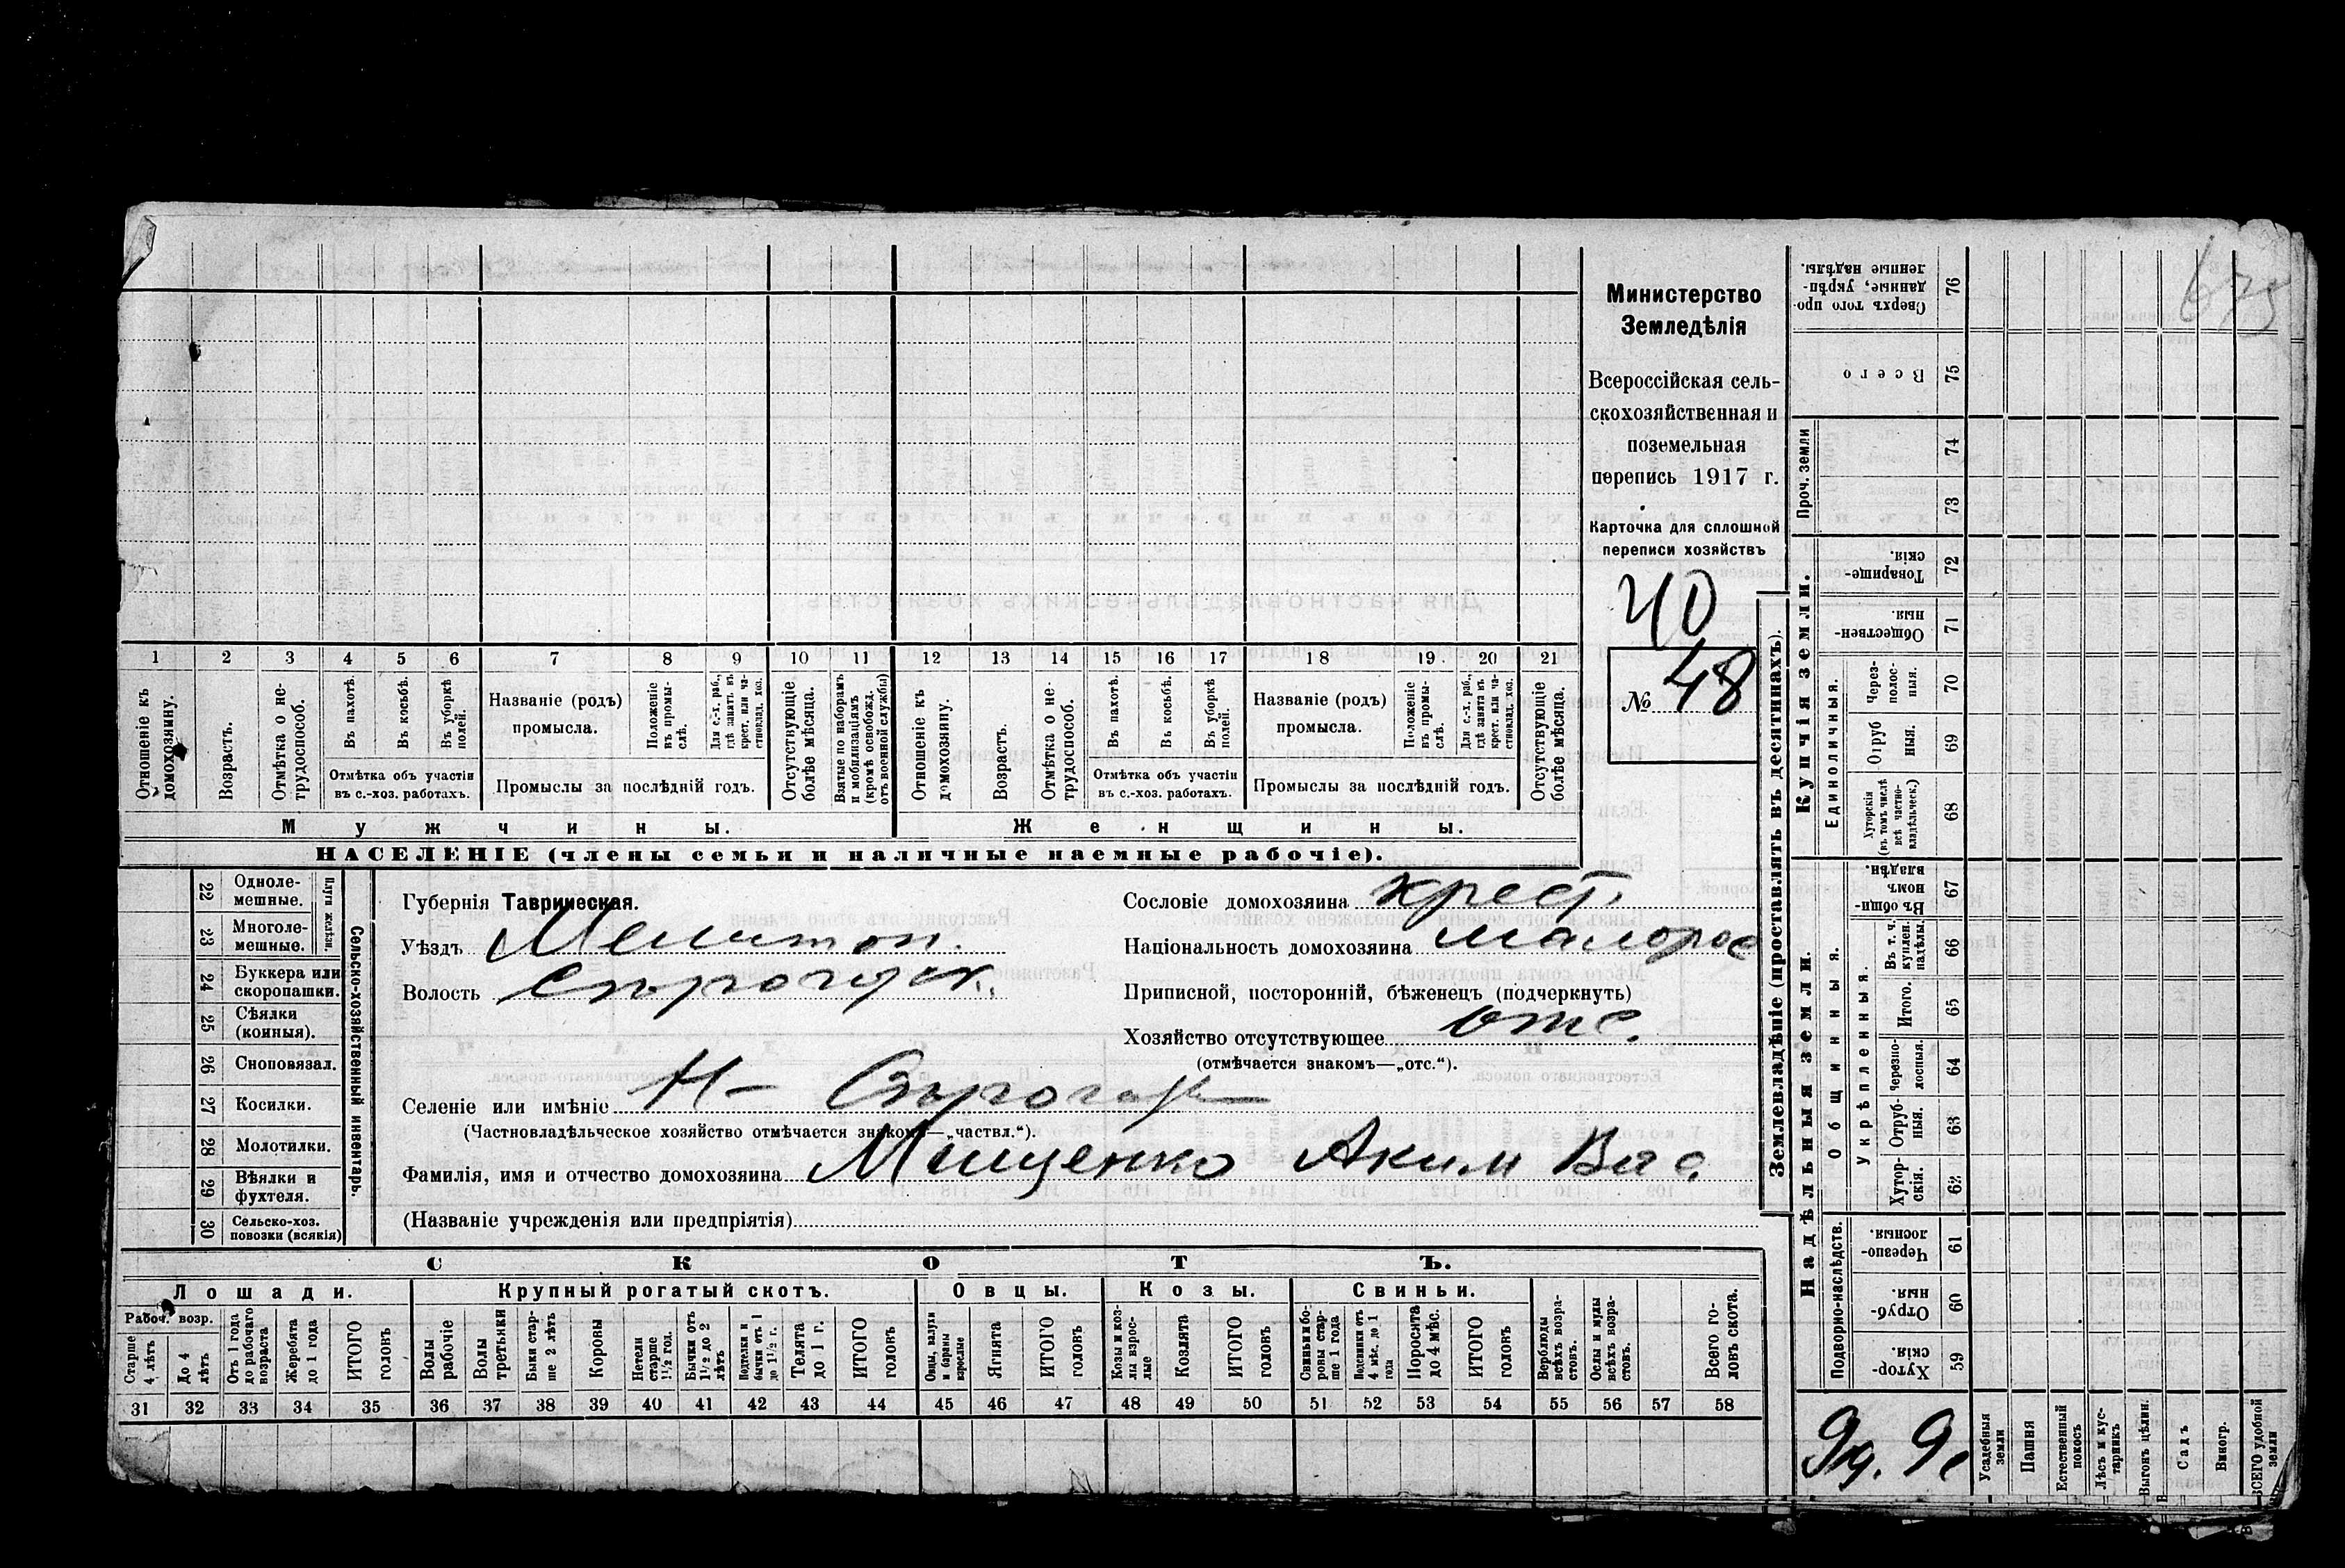 Министерство
Земледѣлія
Всероссійская сель-
скохозяйственная и
поземельная
перепись 1917 г.
Карточка для сплошной
переписи хозяйствъ
40
№ 48
1 2 3 4 5 6 7 8 9 10 11 12 13 14 15 16 17 18 19 20 21
Отношеніе къ домохозяину.
Возрастъ.
Отмѣтка о не-трудоспособ.
Въ пахотѣ.
Въ косьбѣ.
Въ уборкѣ полей.
Отмѣтка объ участіи
въ с.-хоз. работахъ.
Названіе (родъ)
промысла.
Положеніе въ промы-слѣ.
Для с.-х. раб., гдѣ занятъ въ крест. или ча-стновлад. хоз.
Промыслы за послѣдній годъ.
Отсутствующіе болѣе мѣсяца.
Взятые по наборамъ и мобилизаціямъ (кромѣ освобожд. отъ военной службы)
Отношеніе къ домохозяину.
Возрастъ.
Отмѣтка о не-трудоспособ.
Въ пахотѣ.
Въ косьбѣ.
Въ уборкѣ полей.
Отмѣтка объ участіи
въ с.-хоз. работахъ.
Названіе (родъ)
промысла.
Положеніе въ промы-слѣ.
Для с.-х. раб., гдѣ занятъ въ крест. или ча-стновлад. хоз.
Промыслы за послѣдній годъ.
Отсутствующіе болѣе мѣсяца.
Мужчины.
Женщины.
НАСЕЛЕНІЕ (члены семьи и наличные наемные рабочіе).
22 Одноле-мешные.
23 Многоле-мешные.
Плуги желѣзн.
24 Буккера или скоропашки.
25 Сѣялки (конныя).
26 Сноповязал.
27 Косилки.
28 Молотилки.
29 Вѣялки и фухтеля.
30 Сельско-хоз. повозки (всякія)
Сельско-хозяйственный инвентарь.
Губернія Таврическая.
Уѣздъ Мелитоп.
Волость Сѣрогозск.
Сословіе домохозяина крест.
Національность домохозяина малорос
Приписной, посторонній, бѣженецъ (подчеркнуть)
Хозяйство отсутствующее отс.
(отмѣчается знакомъ—„отс.“).
Селеніе или имѣніе Н-Сѣрогозы
(Частновладѣльческое хозяйство отмѣчается знакомъ—„частвл.“).
Фамилія, имя и отчество домохозяина Мищенко Аким Вас.
(Названіе учрежденія или предпріятія)
СКОТЪ.
Лошади. Крупный рогатый скотъ. Овцы. Козы. Свиньи.
Рабоч. возр.
Старше 4 лѣтъ
До 4 лѣтъ
Отъ 1 года до рабочаго возраста
Жеребята до 1 года
ИТОГО головъ
Волы рабочіе
Волы третьяки
Быки стар-ше 2 лѣтъ
Коровы
Нетели старше 1½ год.
Бычки отъ 1½ до 2 лѣтъ
Подтелки и бычки отъ 1 до 1½ г.
Телята до 1 г.
ИТОГО головъ
Овцы, валухи и бараны взрослые
Ягнята
ИТОГО головъ
Козы и коз-лы взрос-лые
Козлята
ИТОГО головъ
Свиньи и бо-ровы стар-ше 1 года
Подсвинки отъ 4 мѣс. до 1 года
Поросята до 4 мѣс.
ИТОГО головъ
Верблюды всѣхъ возра-стовъ.
Ослы и мулы всѣхъ возра-стовъ.
Всего го-ловъ скота.
31 32 33 34 35 36 37 38 39 40 41 42 43 44 45 46 47 48 49 50 51 52 53 54 55 56 57 58
Землевладѣніе (проставлять въ десятинахъ).
Купчія земли.
Надѣльныя земли.
Сверхъ того про-данные, укрѣп-ленные надѣлы. 76
Всего 75
Проч. земли 74 73
Товарище-скія. 72
Обществен-ныя 71
Единоличныя.
Через-полос-ныя. 70
Отруб ныя. 69
Хуторскія (въ томъ числѣ всѣ частно-владѣльческ.) 68
Общинныя.
Въ общи-номъ владѣн. 67
Укрѣпленныя.
Въ т. ч. куплен. надѣлы. 66
Итого. 65
Черезпо-лосныя. 64
Отруб-ныя. 63
Хутор-скія. 62
Подворно-наслѣдств.
Черезпо-лосныя. 61
Отруб-ныя. 60
Хутор-скія. 59
Усадебныя земли
Пашня
Естественный покосъ
Лѣсъ и кус-тарникъ
Выгонъ цѣлин.
Садъ
Виногр.
ВСЕГО удобной земли